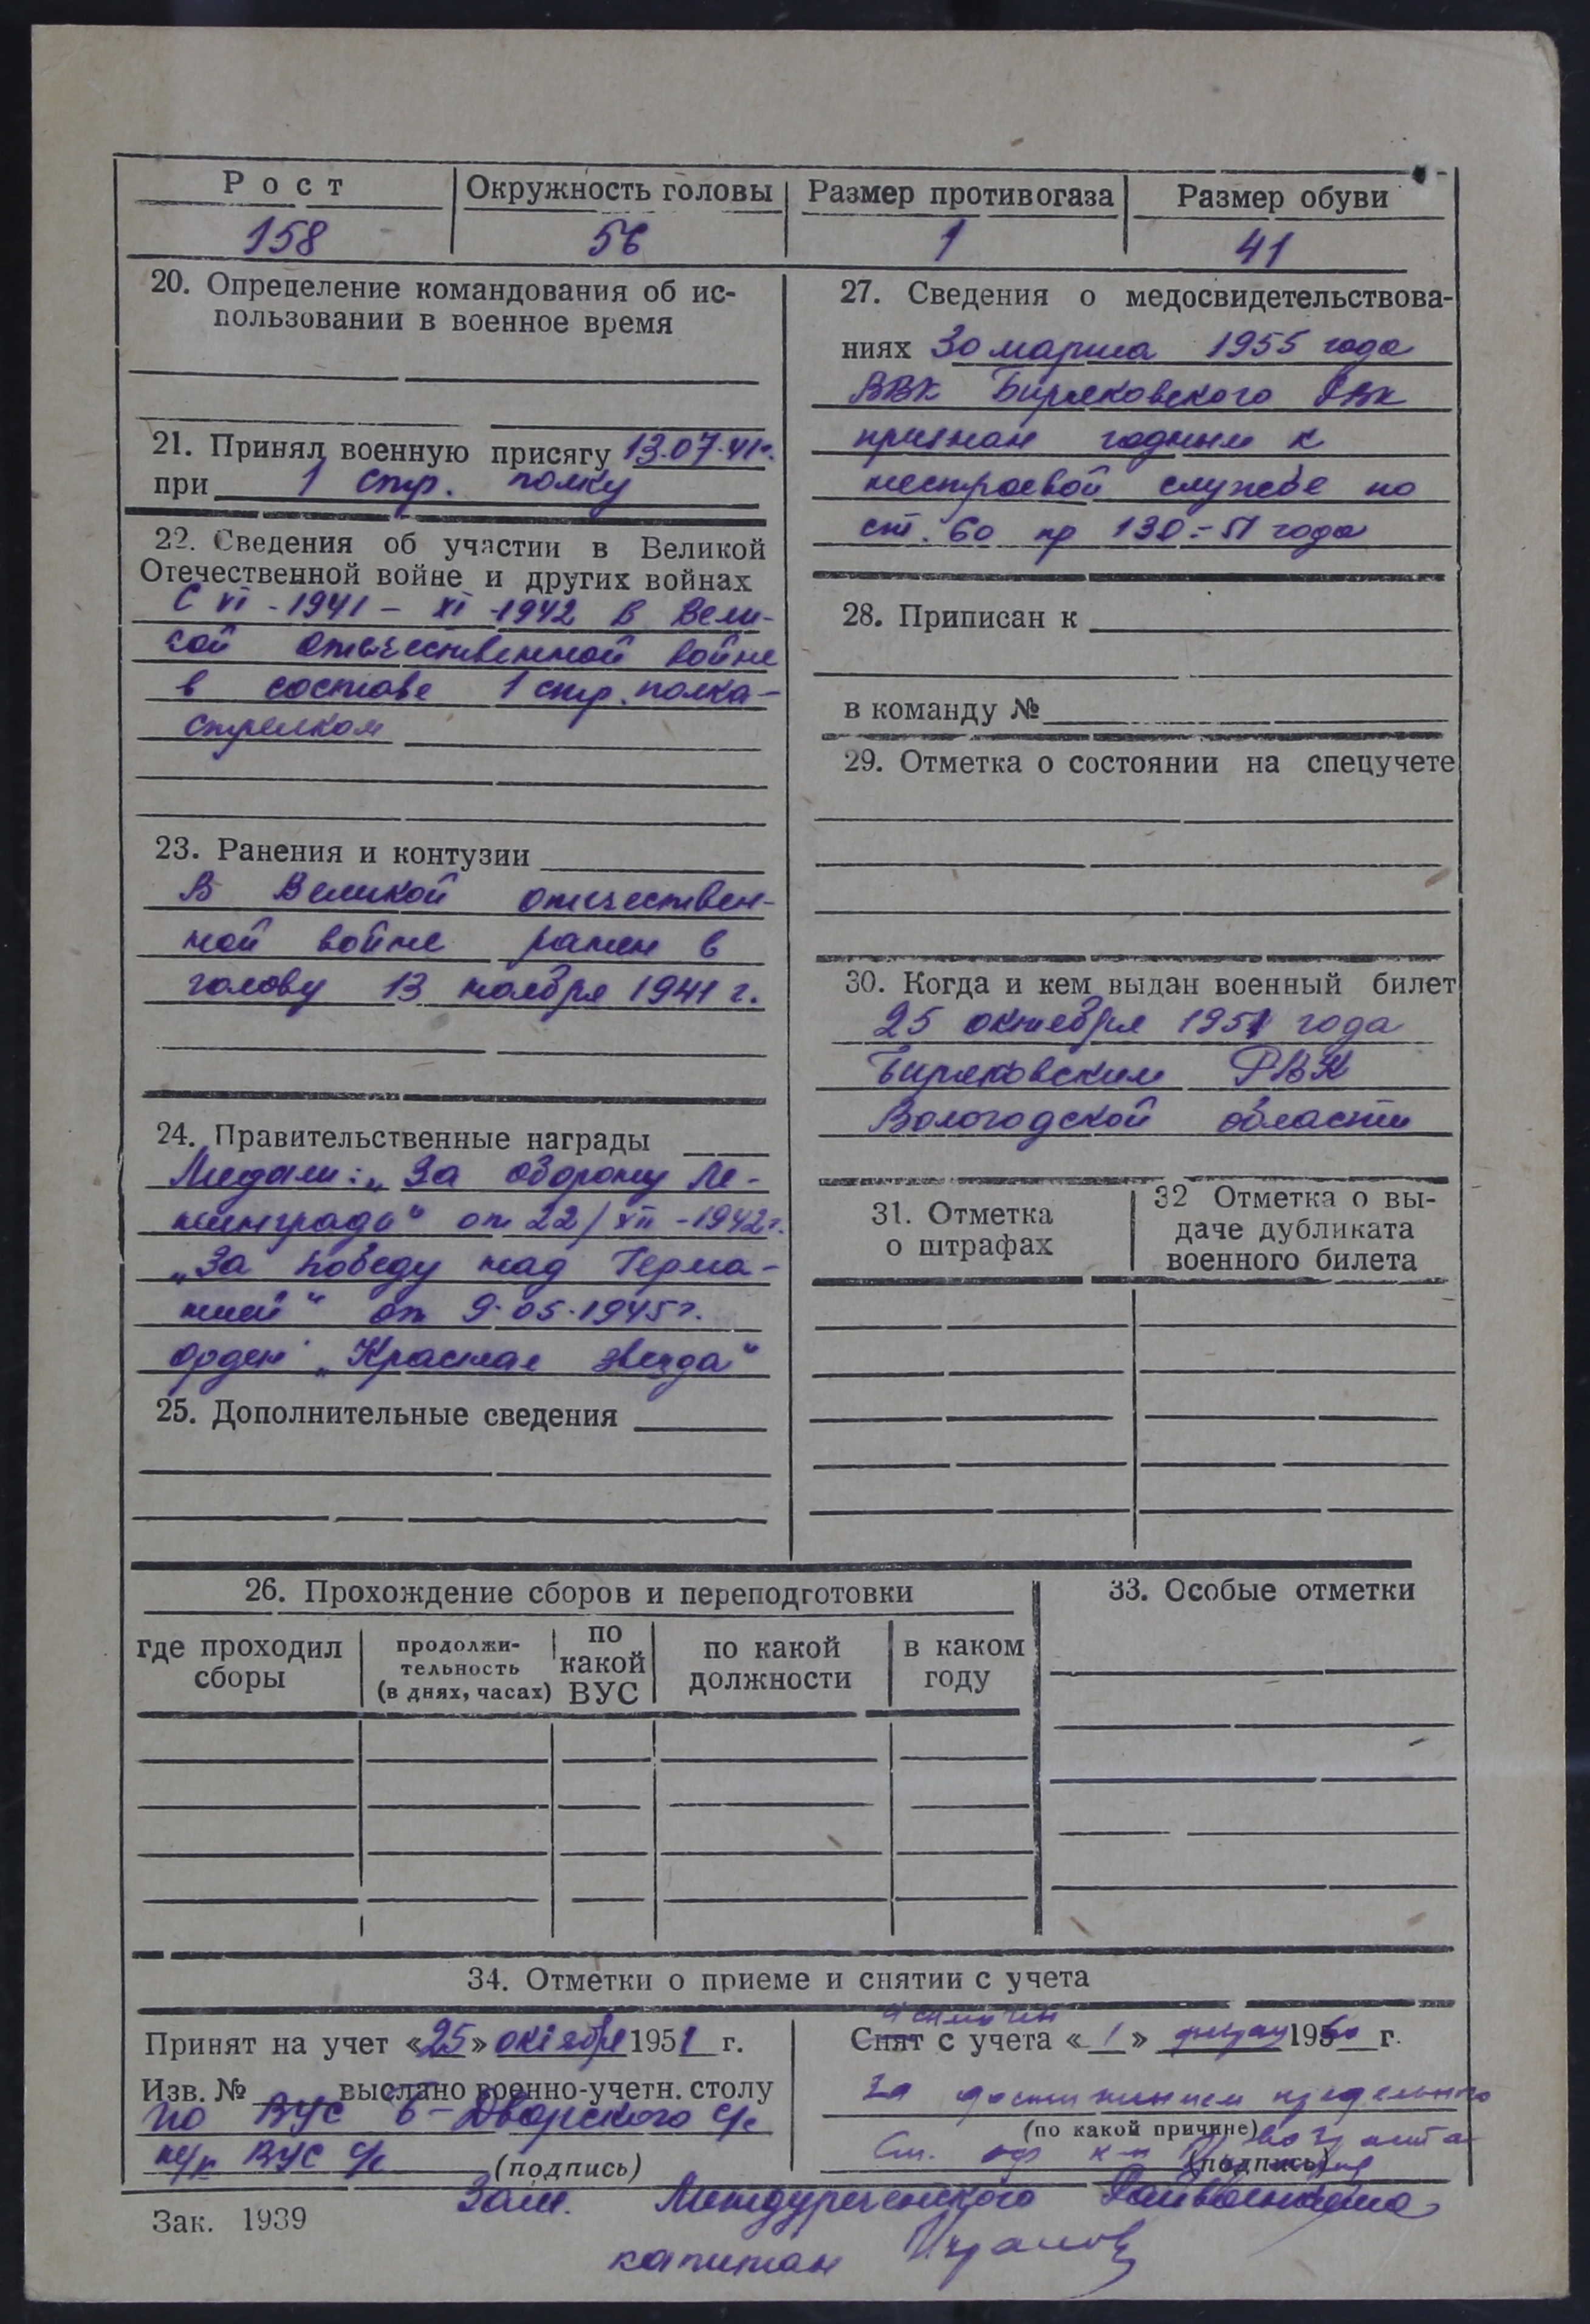 Рост
Окружность головы
Размер противогаза
Размер обуви
158
56
1
41
20. Определение командования об ис-
пользовании в военное время
21. Принял военную присягу 13.07.41г.
при 1 стр. полку
22. Сведения об участии в Великой
Отечественной войне и других войнах
С VI - 1941 - XI - 1942 в Вели-
кой отечественной войне
в составе 1 стр. полка -
стрелком
23. Ранения и контузии
В Великой отечествен-
ной войне ранен в
голову 13 ноября 1941 г.
24. Правительственные награды
Медали: „За оборону Ле-
нинграда“ от 22/XII - 1942г.
„За победу над Герма-
нией“ от 9.05.1945г.
орден „Красная звезда“
25. Дополнительные сведения
27. Сведения о медосвидетельствова-
ниях 30 марта 1955 года
ВВК Биряковского РВК
признан годным к
нестроевой службе по
ст. 60 пр 130-51 года
28. Приписан к
в команду №
29. Отметка о состоянии на спецучете
30. Когда и кем выдан военный билет
25 октября 1951 года
Биряковским РВК
Вологодской области
31. Отметка
о штрафах
32 Отметка о вы-
даче дубликата
военного билета
26. Прохождение сборов и переподготовки
где проходил
сборы
продолжи-
тельность
(в днях, часах)
по
какой
ВУС
по какой
должности
в каком
году
33. Особые отметки
34. Отметки о приеме и снятии с учета
Принят на учет «25» октября 1951 г.
Изв. № выслано военно-учетн. столу
по ВУС Б-Дворского с/с
ВУС с/с
(подпись)
исключен
Снят с учета «1» 1960 г.
за достижением предельного
(по какой причине)
возраста
Ст. оф
(подпись)
Зам. Междуреченского Райвоенкома
капитан
Зак. 1939